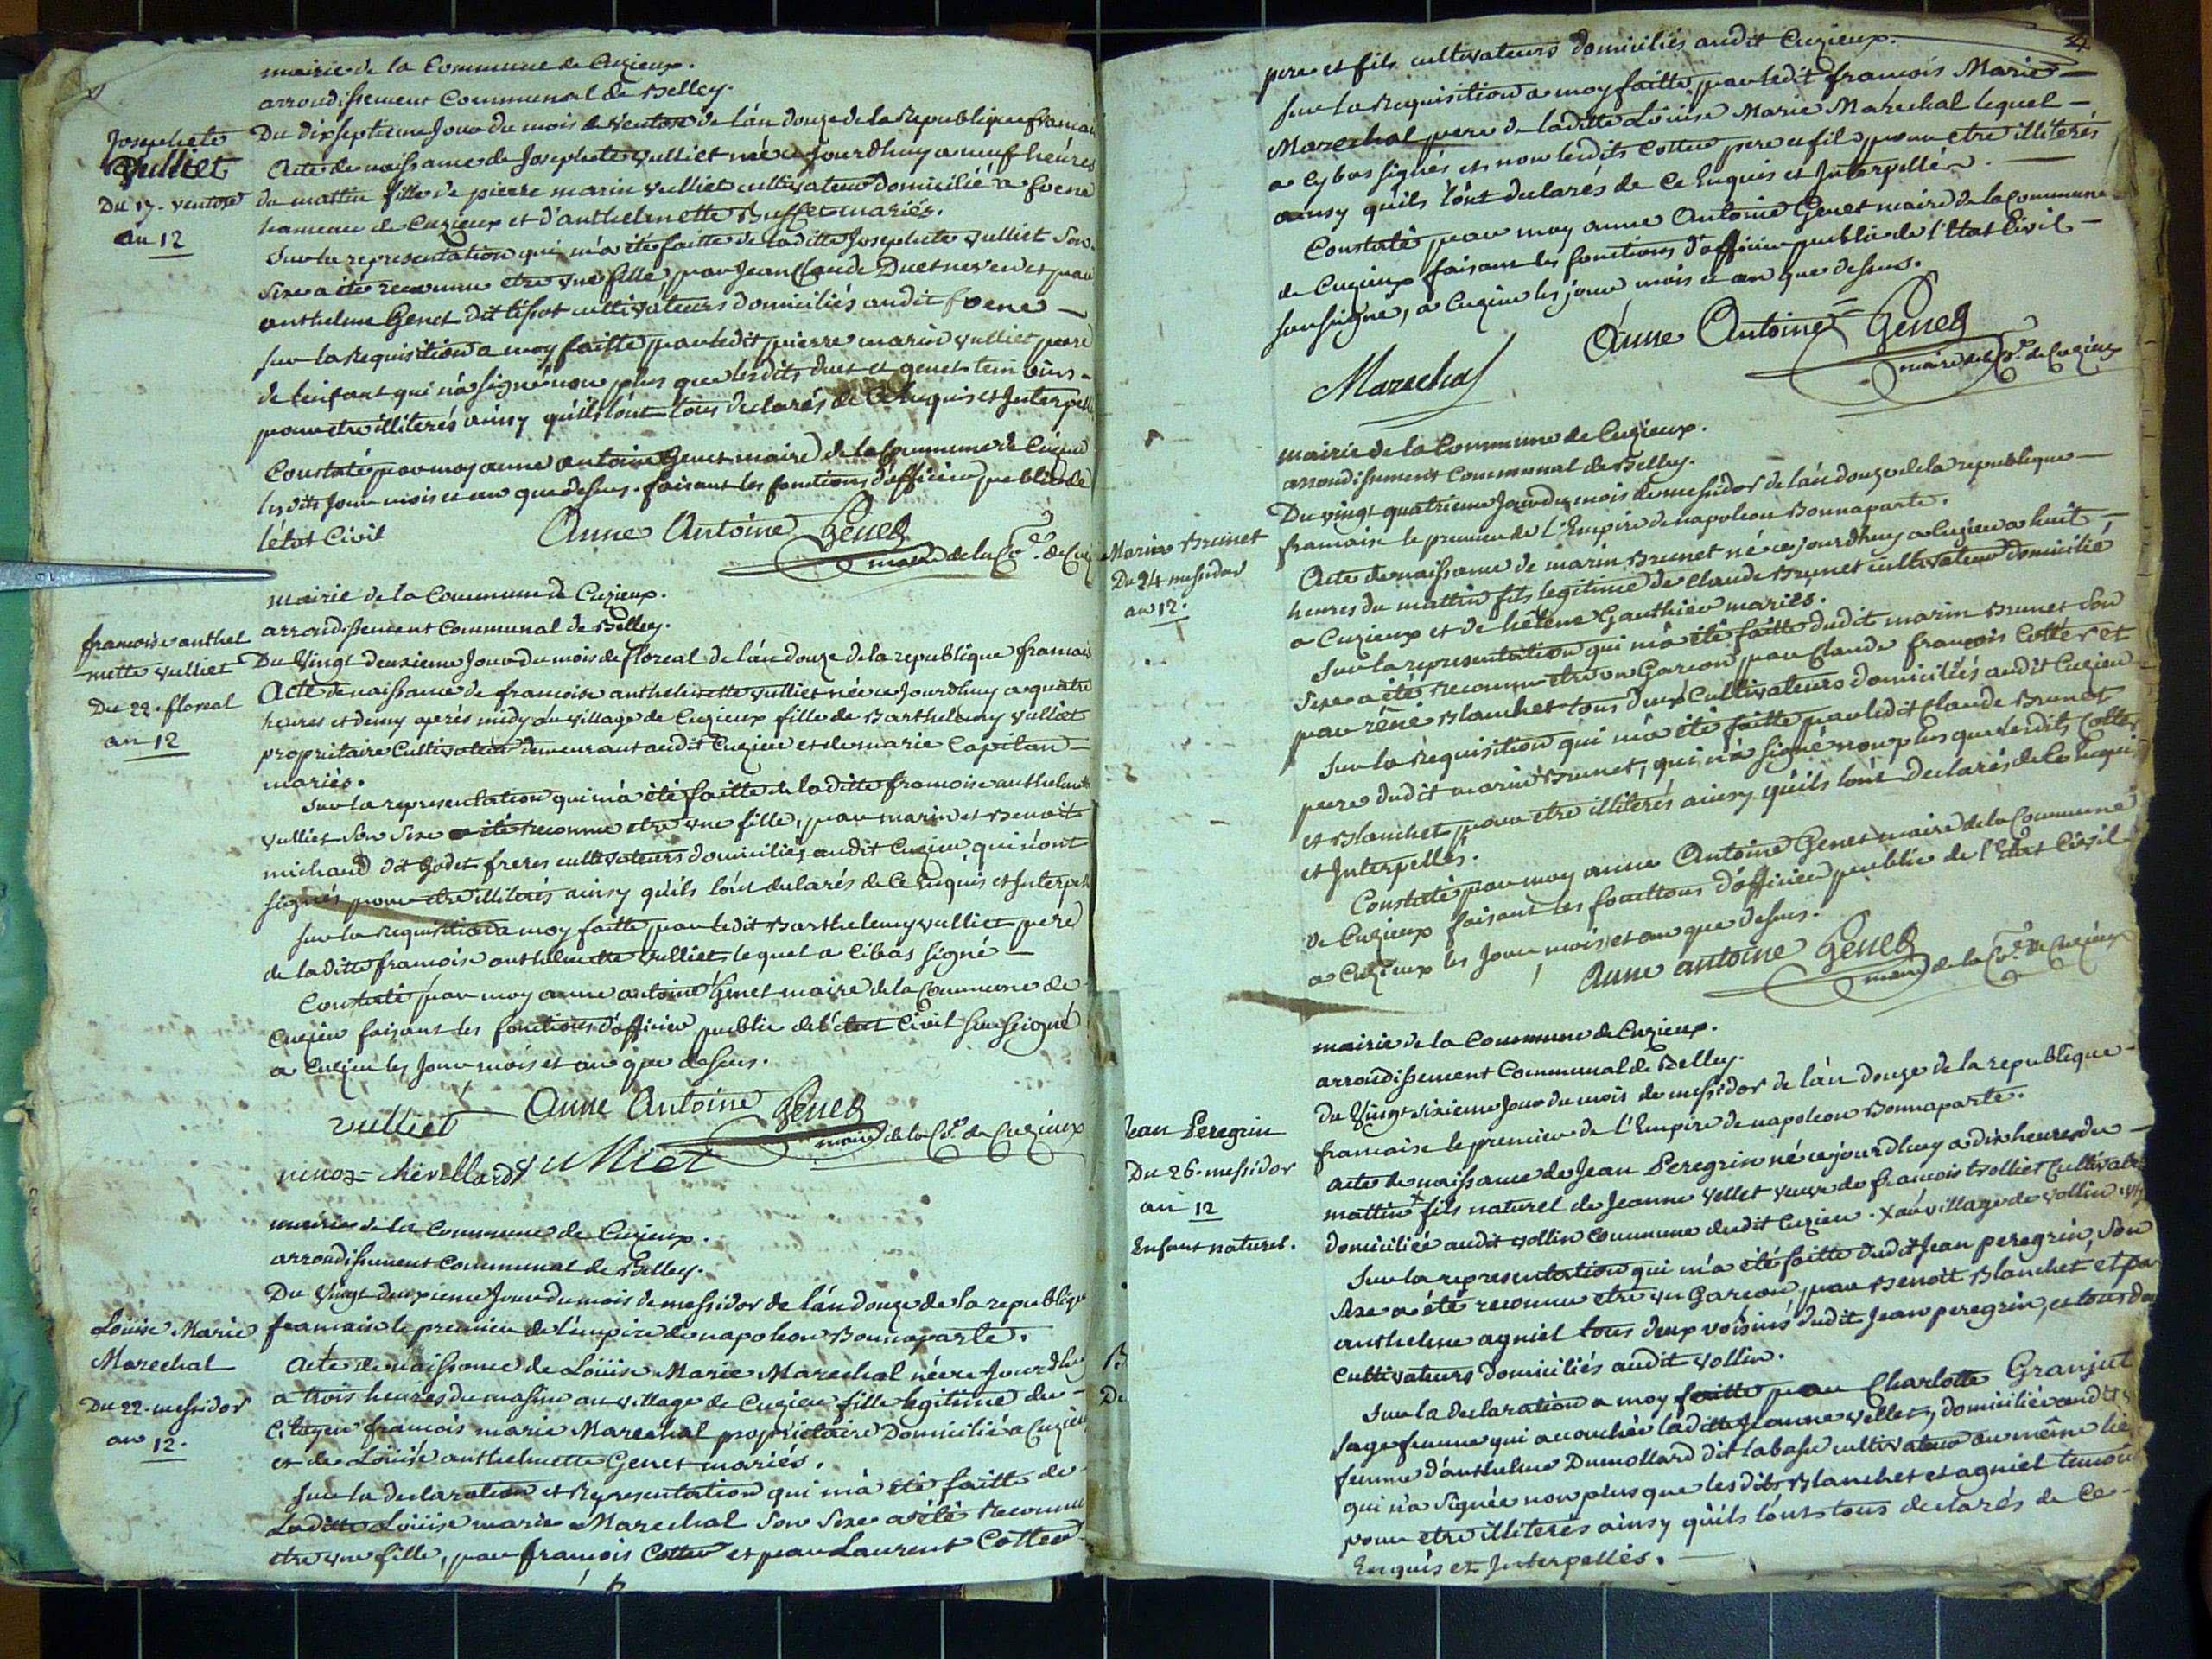 mairie de la Commune de Cuzieux.
arrondissement Communal de Belley.
Josephete
Vulliet
Du 17. ventose
an 12
Du dixseptieme Jour du mois de ventose de l'án douze de la Republique francai
Acte de naissance de Josephete vulliet née ce Jourdhuy a neuf heures
du mattin fille de pierre marin vulliet cultivateur domicilié a foene
hameau de Cuzieux et d'anthelmette Buffet mariés.
Sur la representation qui m'a été faitte de laditte Josephete vulliet son
sexe a été reconnu etre une fille, par Jean Claude Duet neveu et par
anthelme Genet dit tissot cultivateurs domiciliés audit foene
sur la Requisition a moy faitte par ledit pierre marin vulliet pere
de l'enfant qui n'a signé non plus que lesdits duet et genet temoins
pour etre illiterés ainsy qu'ils l'ont tous declarés de ce Enquis et Interpell
Constaté par moy anne antoine Genet maire de la Commune de Cuzieu
lesdits Jour mois et an que dessus. faisant les fonctions d'officier public de
l'état Civil
Anne Antoine Genet
maire de la Cne. de Cuz
mairie de la Commune de Cuzieux.
arrondissement Communal de Belley.
francoise anthel
mette vulliet
Du 22. floreal
an 12
Du Vingt deuxieme Jour du mois de floreal de l'án douze de la republique francais
Acte de naissance de francoise anthelmette vulliet née ce Jourdhuy a quatre
heures et demy aprés midy au village de Cuzieux fille de Barthelemy vulliet
propritaire Cultivateur demeurant audit Cuzieu et de marie Capitan
mariés.
Sur la representation qui m'a été faitte de laditte francoise anthelmette
vulliet son sexe a été reconnu etre une fille, par marin et Benoit
michaud dit Godet freres cultivateurs domiciliés audit Cuzieu qui n'ont
signés pour etre illiterés ainsy qu'ils l'ónt declarés de Ce Enquis et Interpell
sur la Requisition a moy faitte par ledit Barthelemy vulliet pere
de laditte francoise anthelmette vulliet lequel a cibas signé
Constaté par moy anne antoine Genet maire de la Commune de
Cuzieu faisant les fonctions d'officier public de l'état Civil soussigné
a Cuzieu les Jour mois et an que dessus.
vulliet Anne Antoine Genet
maire de la Cne. de Cuzieux
chevillard vulliet
mairie de la Commune de Cuzieux.
arrondissement Communal de Belley.
Louise Marie
Marechal
Du 22. messidor
an 12.
Du Vingt deuxieme Jour du mois de messidor de l'án douze de la republique
francaise le premier de l'empire de napoleon Bonnaparte.
Acte de naissance de Loüise Marie Marechal née ce Jourdhuy
a trois heures du matin au village de Cuzieu fille legitime du
Citoyen francois marie Marechal propriétaire Domicilié a Cuzieu
et de Loüise anthelmette Genet mariés.
Sur la declaration et Representation qui m'a été faitte de
Laditte Loüise marie Marechal son sexe a été Reconnu
etre une fille, par françois Cotter et par Laurent Cotter
4
pere et fils cultivateurs domiciliés audit Cuzieux.
Sur la Requisition a moy faitte par ledit francois Marie
Marechal pere de laditte Loüise Marie Marechal lequel
a cybas signés et non lesdits Cotter pere et fils pour etre illiterés
ainsy qu'ils l'ont declarés de Ce Enquis et Interpellés.
Constaté par moy anne Antoine Genet maire de la Commune
de Cuzieux faisant les fonctions d'officier public de l'état Civil
soussigné, a Cuzieu les jour mois et an que dessus.
Marechal
Anne Antoine Genet
maire de la Cne. de Cuzieux
mairie de la Commune de Cuzieux.
arrondissement Communal de Belley.
Marin Brunet
Du 24 messidor
an 12.
Du vingt quatrieme Jour du mois de messidor de l'án douze de la republique
francaise le premier de l'Empire de napoleon Bonnaparte.
Acte de naissance de marin Brunet né ce jourdhuy a Cuzieu a huit
heures du mattin fils legitime de Claude Brunet cultivateur domicilié
a Cuzieux et de héléne Gauthier mariés.
Sur la representation qui m'a été faitte dudit marin Brunet son
sexe a été reconnu etre un Garcon par Claude françois Cotter et
par réné Blanchet tous deux Cultivateurs domiciliés audit Cuzieu
Sur la Requisition qui m'a été faitte par ledit Claude Brunet
pere dudit marin Brunet, qui n'a signé non plus que lesdits Cotter
et Blanchet pour etre illiterés ainsy qu'ils l'ont declarés de Ce Enquis
et Interpellés.
Constaté par moy anne Antoine Genet maire de la Commune
de Cuzieux faisant les fonctions d'officier public de l'Etat Civil
a Cuzieux les Jour, mois et an que dessus.
Anne antoine Genet
maire de la Cne. de Cuzieux
mairie de la Commune de Cuzieux.
arrondissement Communal de Belley.
Jean Peregrin
Du 26. messidor
an 12
Enfant naturel.
Du Vingt sixieme Jour du mois de messidor de l'án douze de la republique
francaise le premier de l'Empire de napoleon Bonnaparte.
acte de naissance de Jean Peregrin né ce jourdhuy a dix heures du
mattin x fils naturel de Jeanne vellet veuve de francois trolliet Cultivat
domiciliée audit vollin commune dudit Cuzieu. x au village de vollin
Sur la representation qui m'a été faitte dudit Jean peregrin, son
sexe a été reconnu etre un Garcon, par Benoit Blanchet et par
anthelme agniel tous deux voisins dudit Jean peregrin, et tous d
Cultivateurs domiciliés audit vollin.
Sur la declaration a moy faitte par Charlotte Granjut
sagefemme qui a couchée laditte Jeanne vellet, domiciliée audit
femme d'anthelme Dumollard dit labasse cultivateur au même lie
qui n'a signée non plus que lesdits Blanchet et agniel temoi
pour etre illiterés ainsy qu'ils l'ónt tous declarés de Ce
Enquis et Interpellés.
B
Du